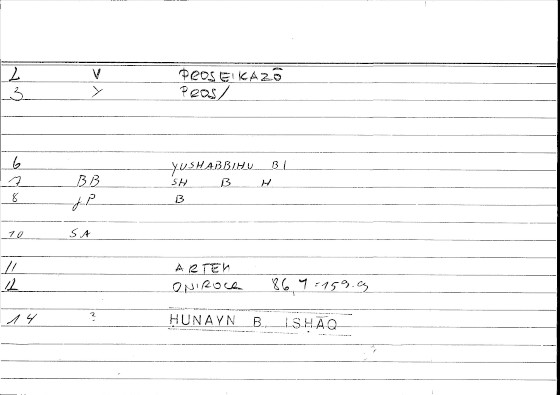 2 V PROSEIKAZŌ
3 Y PROS/
6 YUSHABBIHU BI
7 BB SH B H
8 JP B
10 SA
11 ARTEM
12 ONIROCR 86,7 = 159.9
14 ? ḤUNAYN B. ISḤĀQ